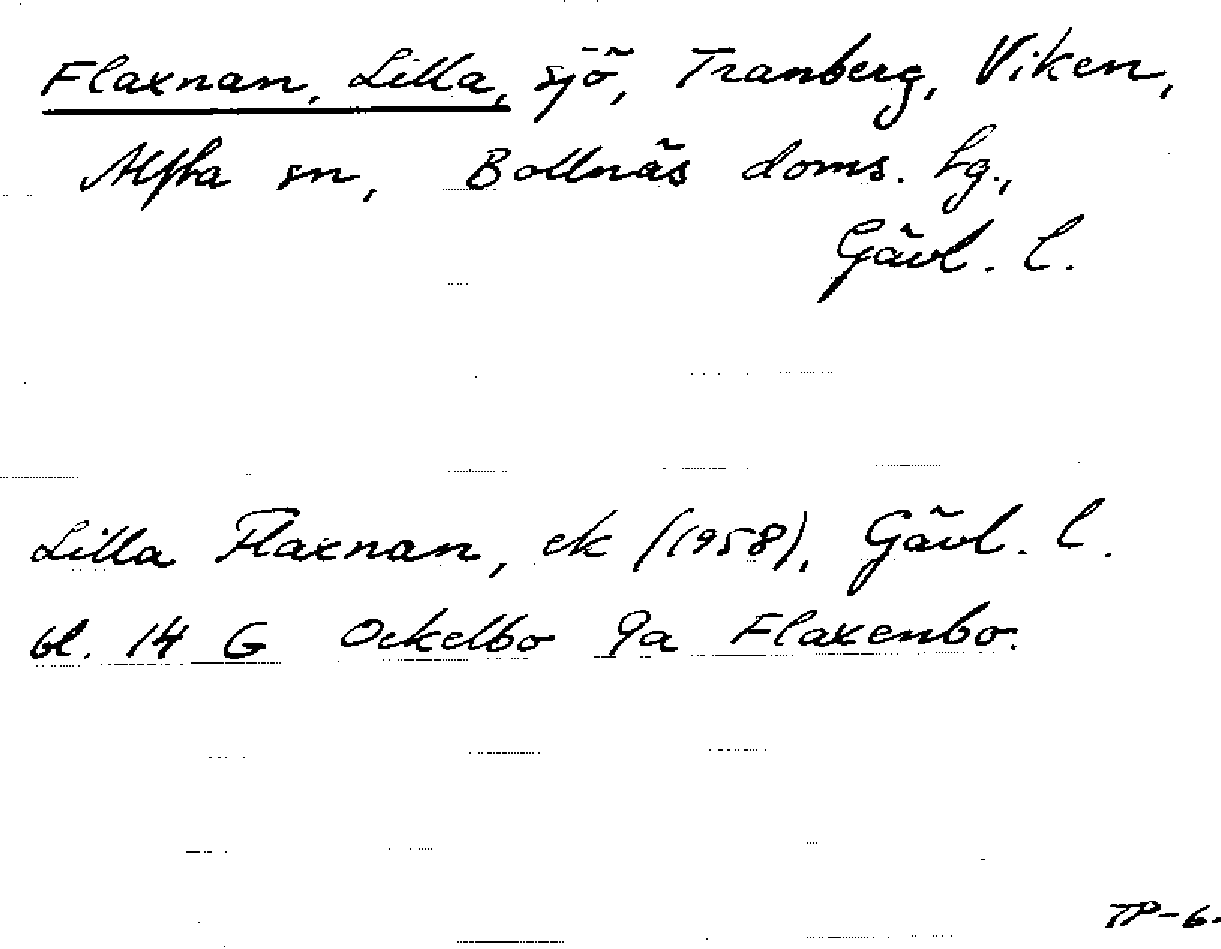 Flaxnan, Lilla, sjö, Tranberg, Viken,
Alfta sn, Bollnäs doms. hg.,
Gävl. l.
Lilla Flaxnan, ek (1958), Gävl. l.
bl. 14 G Ockelbo 9a Flaxenbo.
TP-6.